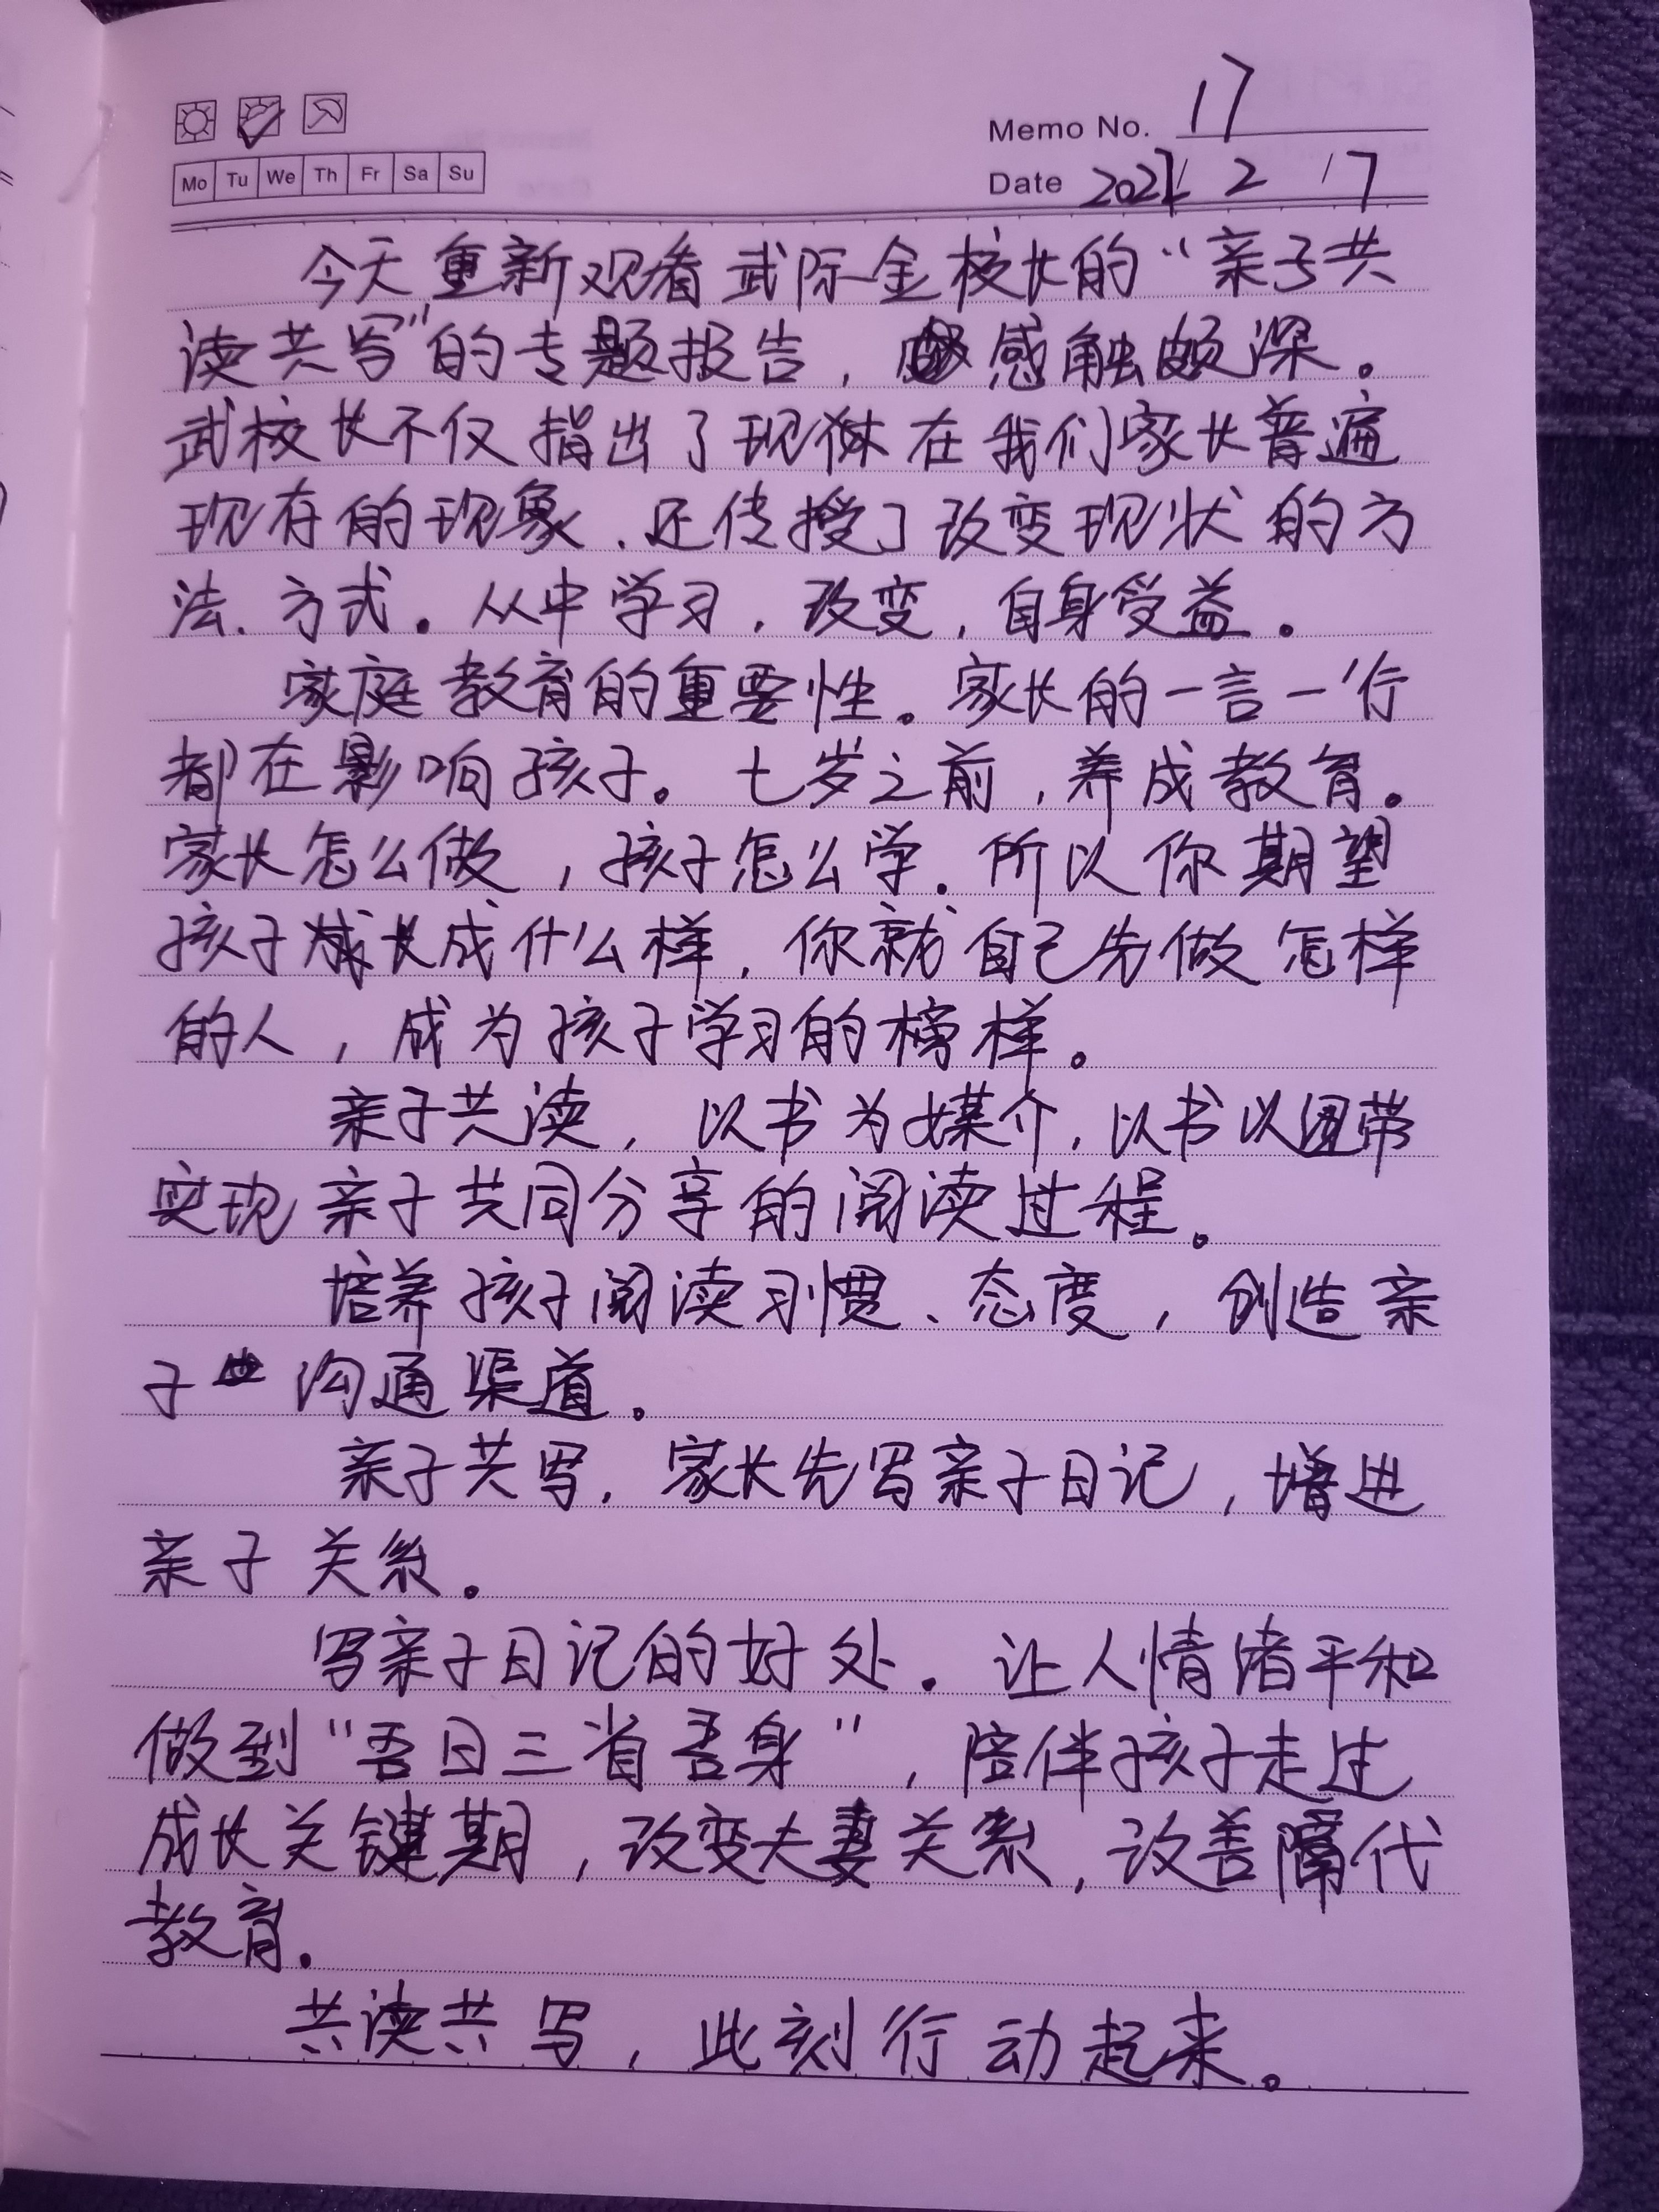 Memo No. 17
Mo Tu We Th Fr Sa Su
Date 2021/2/7
今天重新观看武际金校长的“亲子共
读共写”的专题报告，感触颇深。
武校长不仅指出了现在我们家长普遍
现存的现象、还传授了改变现状的方
法、方式。从中学习，改变，自身受益。
家庭教育的重要性。家长的一言一行
都在影响孩子。七岁之前，养成教育。
家长怎么做，孩子怎么学．所以你期望
孩子成长成什么样，你就自己先做怎样
的人，成为孩子学习的榜样。
亲子共读，以书为媒介，以书以纽带
实现亲子共同分享的阅读过程。
培养孩子阅读习惯、态度，创造亲
子沟通渠道。
亲子共写，家长先写亲子日记，增进
亲子关系。
写亲子日记的好处。让人情绪平和
做到“吾日三省吾身”，陪伴孩子走过
成长关键期，改变夫妻关系，改善隔代
教育。
共读共写，此刻行动起来。